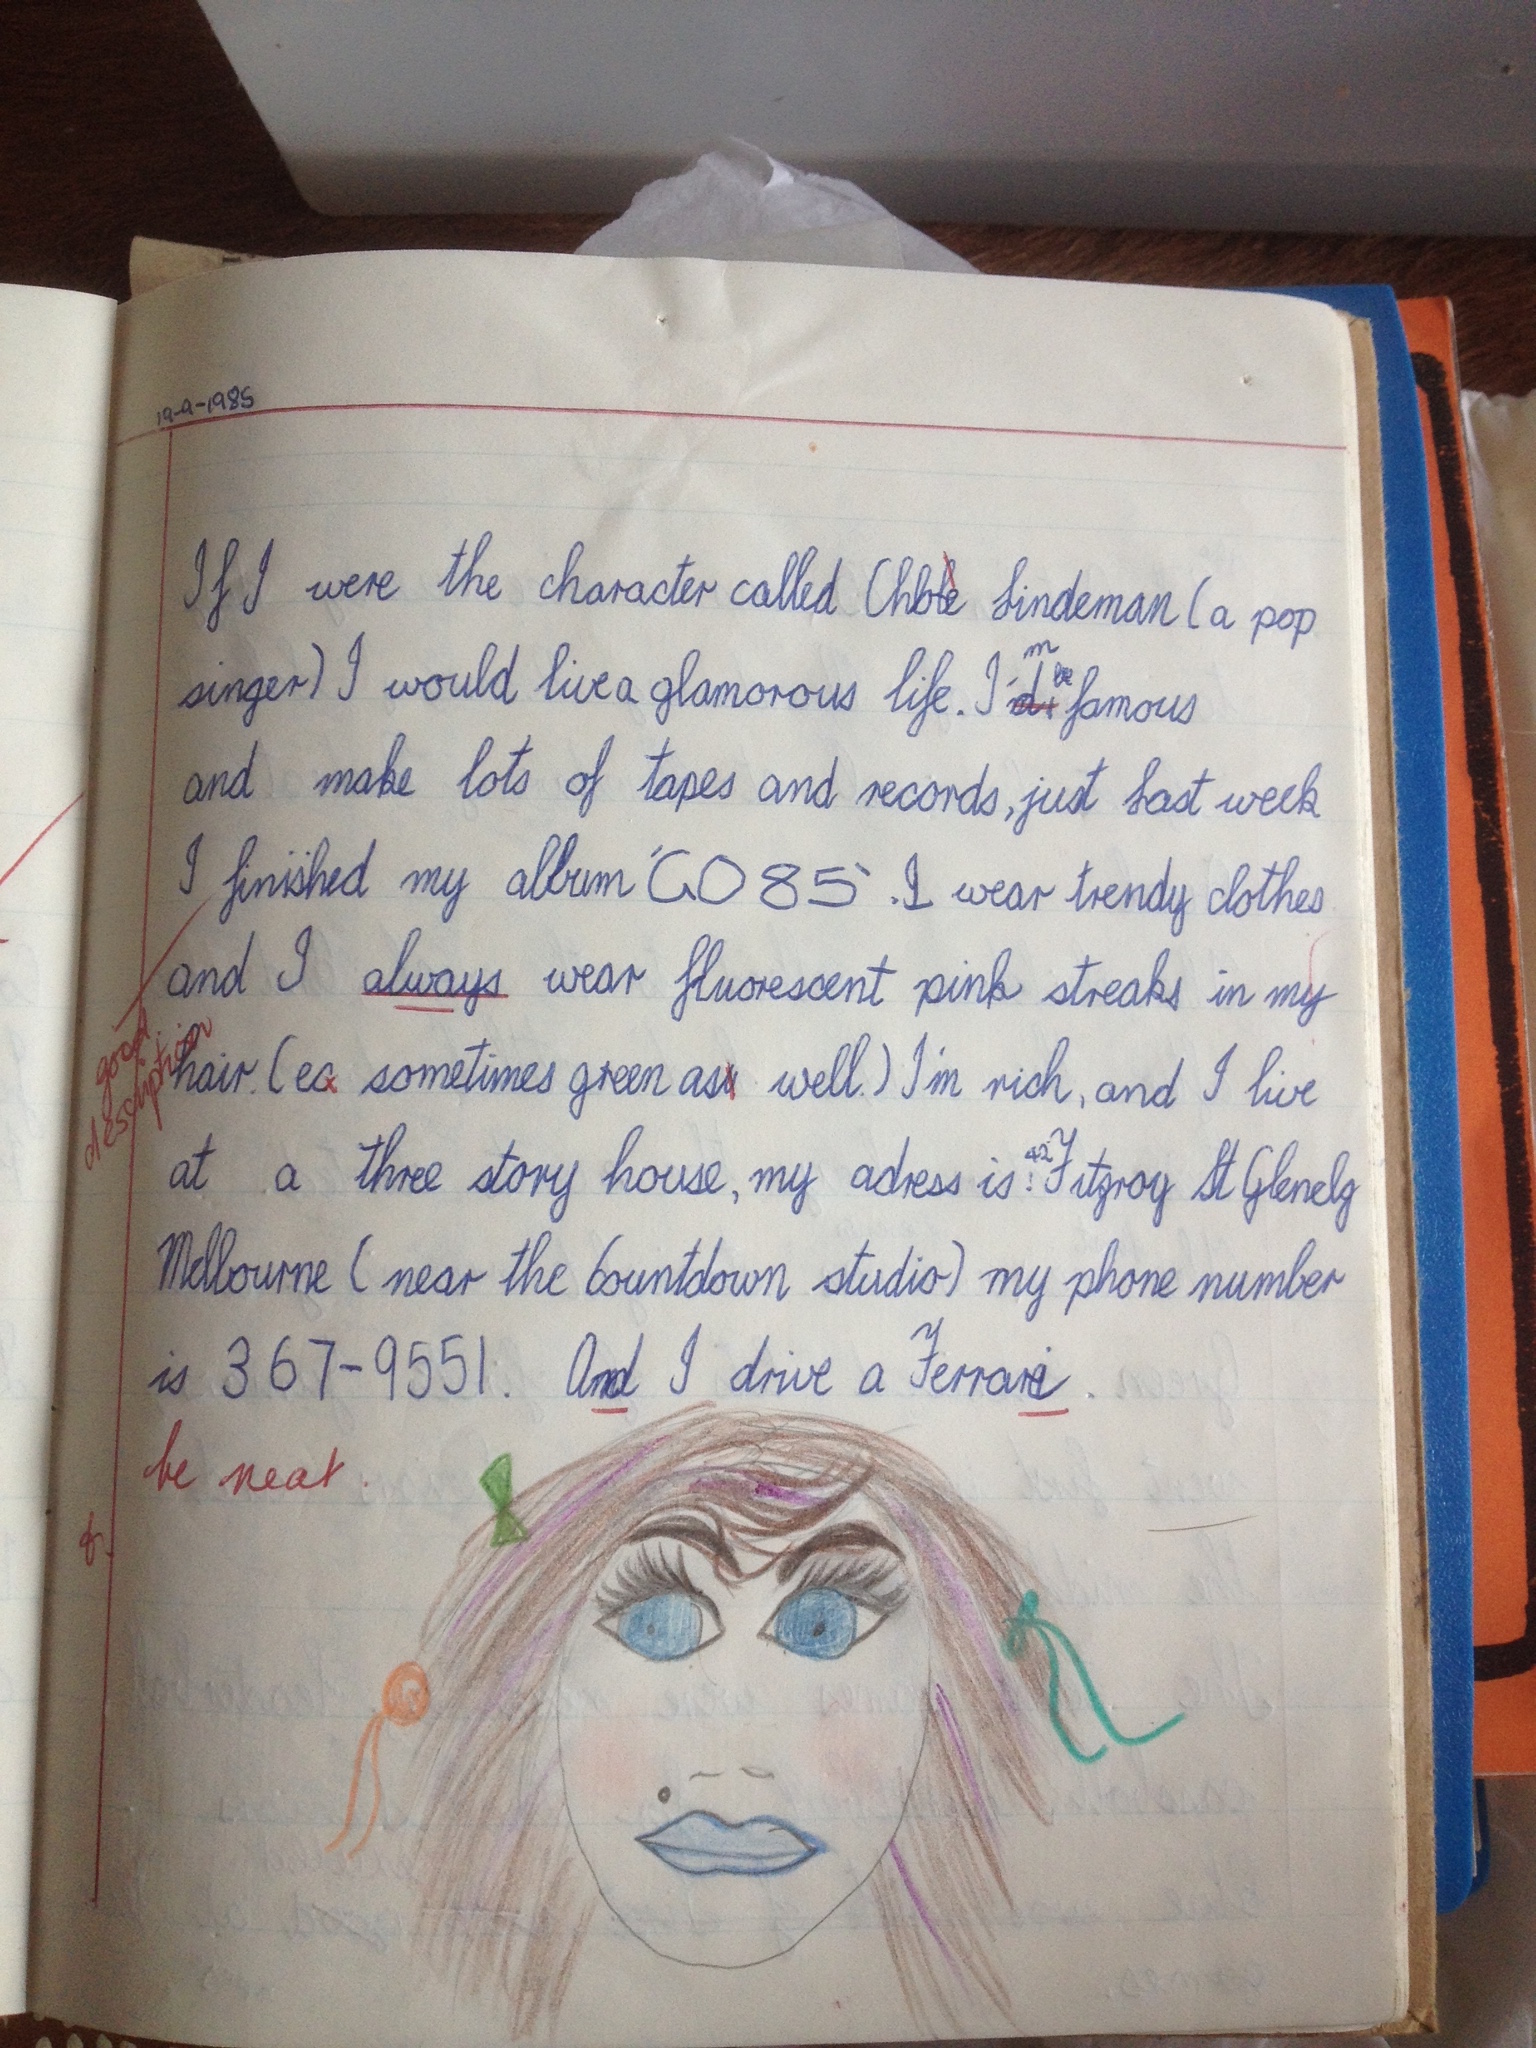 19-9-1985
If I were the character called Chloe Lindeman (a pop
singer) I would live a glamorous life. I'm be famous
and make lots of tapes and records, just last week
I finished my album 'GO 85'. I wear trendy clothes
and I always wear fluorescent pink streaks in my
good description
hair. ( sometimes green as well.) I'm rich, and I live
at a three story house, my adress is: 42 Fitzroy St Glenelg
Melbourne ( near the Countdown studio) my phone number
is 367-9551. And I drive a Ferrari.
be neat.